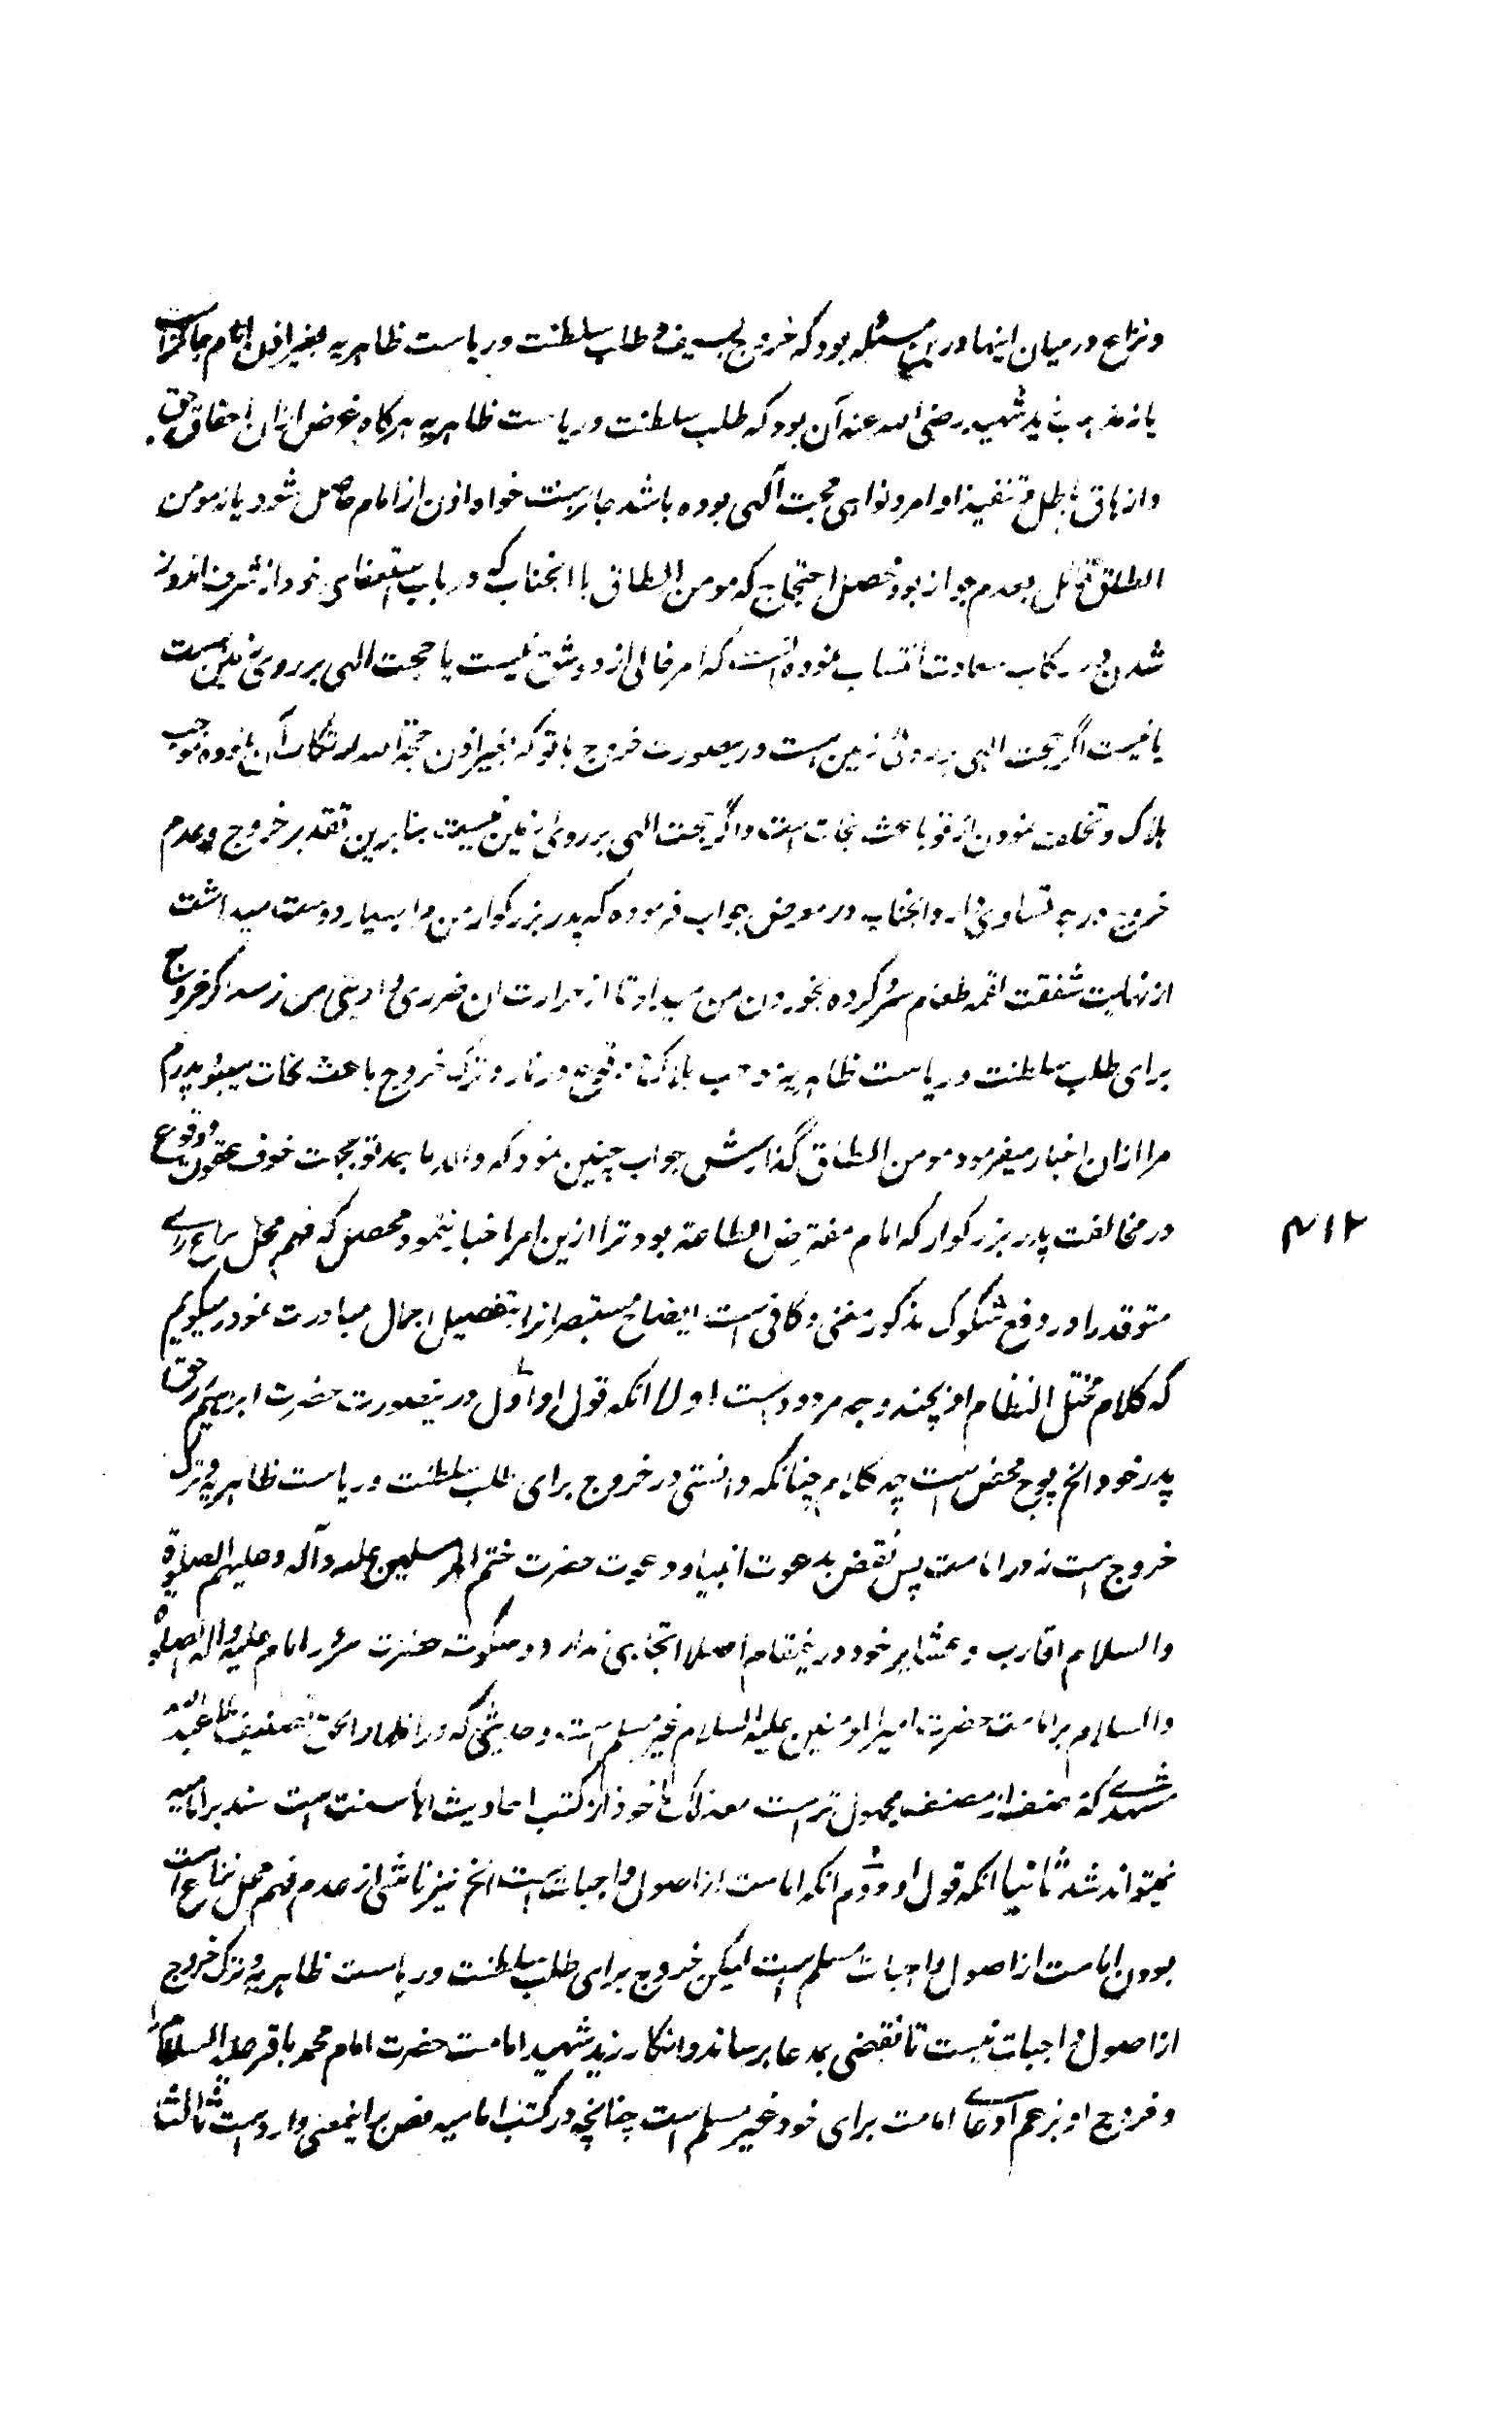 ونزاع درمیان اینها درین مسئله بود که خروج بسیف و طلب سلطنت و ریاست ظاهریه بغیر اذن امام جائز است
یا نه مذهب زید شهید رضی الله عنه آن بود که طلب سلطنت و ریاست ظاهریه هرگاه غرض ازان احقاق حق
وازهاق باطل و تنفیذ اوامر ونواهی آلهی بوده باشد جائزست خواه اذن از امام حاصل شود یا نه مومن
الطاق قائل بعدم جواز بود محصل احتجاج که مومن الطاق با انجناب که در باب استعفای خود از شرف اندوز
شدن در رکاب سعادت انتساب نموده اینست که امر خالی از دو شق نیست یا حجت الهی بر روی زمین هست
یا نیست اگر حجت الهی بر روی زمین هست درینصورت خروج با تو که بغیر اذن حجة الله ارتکاب آن نموده موجب
هلاک و تخلف نمودن از تو باعث نجات است و اگر حجت الهی بر روی زمین نیست بنابرین تقدیر خروج و عدم
خروج درجه تساوی دارد و انجناب در معرض جواب فرموده که پدر بزرگوار من مرا بسیار دوست میداشت
از نهایت شفقت لقمه طعام سرد کرده بخوردن من میداد تا از حرارت ان ضرری و اذیتی بمن نرسد اگر خروج
برای طلب سلطنت و ریاست ظاهریه موجب هلاکت و وقوع در نار و ترک خروج باعث نجات میبود پدرم
مرا ازان اخبار میفرمود مومن الطاق گذارش جواب چنین نمود که والد ماجد تو بجهت خوف عقوبت و وقوع
در مخالفت پدر بزرگوار که امام مفترض الطاعة بود ترا ازین امر اخبار ننمود محصل که فهم محل نزاع رای
متوقد را در دفع شکوک مذکور مغنی و کافی است ایضاح مستبصرانرا بتفصیل اجمال مبادرت نموده میگویم
که کلام مختل النظام او بچند وجه مردود است اولا انکه قول او اول درینصورت حضرت ابراهیم در حق
پدر خود الخ پوچ محض است چه کلام چنانکه دانستی در خروج برای طلب سلطنت و ریاست ظاهریه و ترک
خروج است نه در امامت پس نقض بدعوت انبیا و دعوت حضرت ختم المرسلین علیه وآله وعلیهم الصلوة
والسلام اقارب و عشایر خود درینمقام اصلا اتجاهی ندارد و سکوت حضرت سرور انام علیه و اله الصلوة
والسلام بر امامت حضرت امیرالمومنین علیه السلام غیر مسلم است و حدیثی که در اظهار الحق تصنیف ملا عبد الله
مشهدی که مصنف از مصنف مجهول تر است معه ذلک ماخوذ از کتب احادیث اهل سنت است سند بر امامیه
نمیتواند شد ثانیا انکه قول او دوم انکه امامت از اصول واجبات است الخ نیز ناشی از عدم فهم محل نزاع است
بودن امامت از اصول واجبات مسلم است لیکن خروج برای طلب سلطنت و ریاست ظاهریه و ترک خروج
از اصول واجبات نیست تا نقضی بمدعا برساند و انکار زید شهید امامت حضرت امام محمد باقر علیه السلام را
وخروج او بزعم ادعای امامت برای خود غیر مسلم است چنانچه در کتب امامیه نص بر اینمعنی وارد است ثالثا
۴۱۲